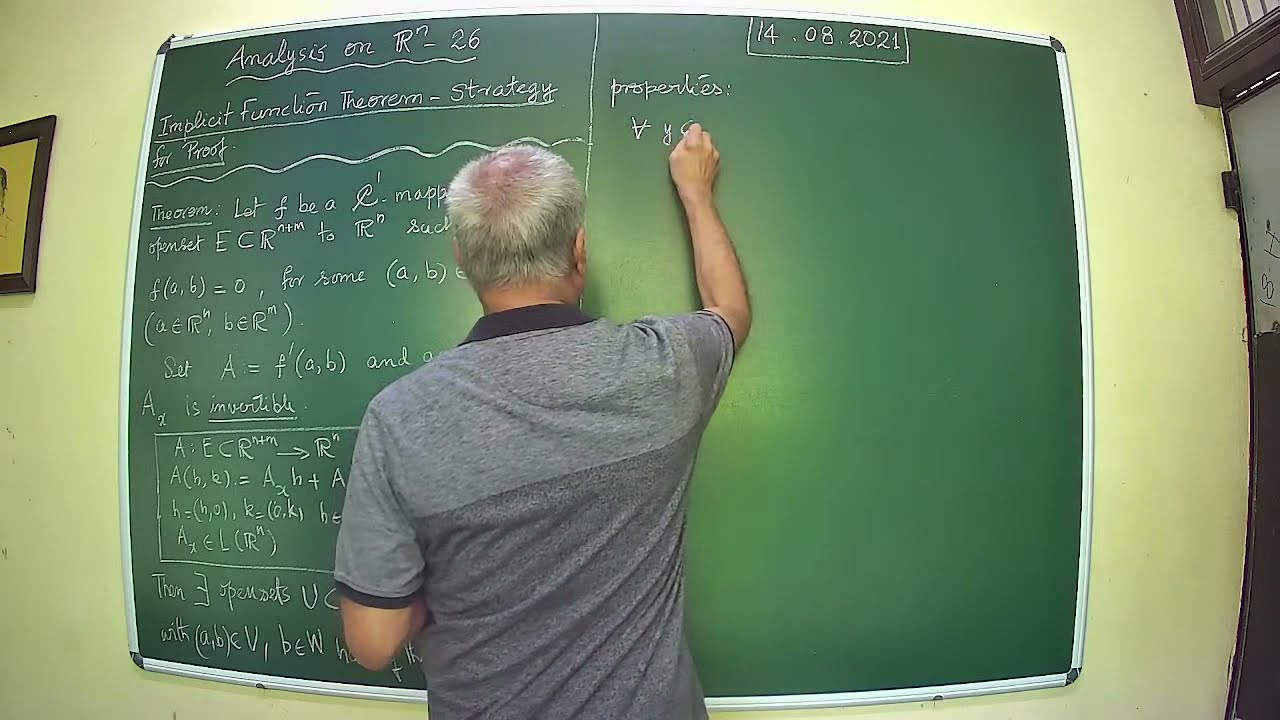 Analysis on ℝⁿ - 26
Implicit Function Theorem - Strategy
for Proof.
Theorem: Let f be a 𝒞¹- mapp
openset E ⊂ ℝⁿ⁺ᵐ to ℝⁿ suc
f(a,b) = 0 , for some (a, b) ∈
(a∈ℝⁿ, b∈ℝᵐ).
Set A := f'(a,b) and a
Aₓ is invertible.
A: E⊂ℝⁿ⁺ᵐ → ℝⁿ
A(h, k) = Aₓ h + A
h=(h,0), k=(0,k) h∈
Aₓ ∈ L(ℝⁿ)
Then ∃ opensets U ⊂
with (a,b)∈U, b∈W
14.08.2021
properties:
∀ y ∈